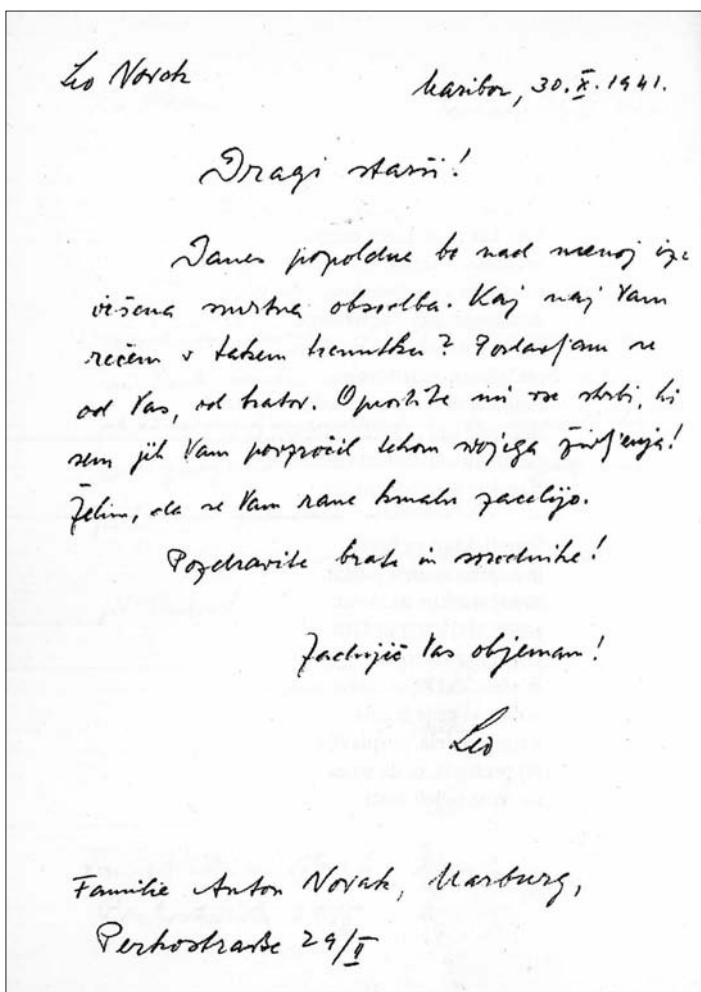 Leo Novak
Maribor, 30. X. 1941.
Dragi starši!
Danes popoldne bo nad menoj iz-
vršena smrtna obsodba. Kaj naj Vam
rečem v takem trenutku? Poslavljam se
od Vas, od bratov. Oprostite mi vse skrbi, ki
sem jih Vam povzročil tekom svojega življenja!
Želim, da se Vam rane kmalu zacelijo.
Pozdravite brate in sorodnike!
Zadnjič Vas objemam!
Leo
Familie Anton Novak, Marburg,
Perkostraße 29/II